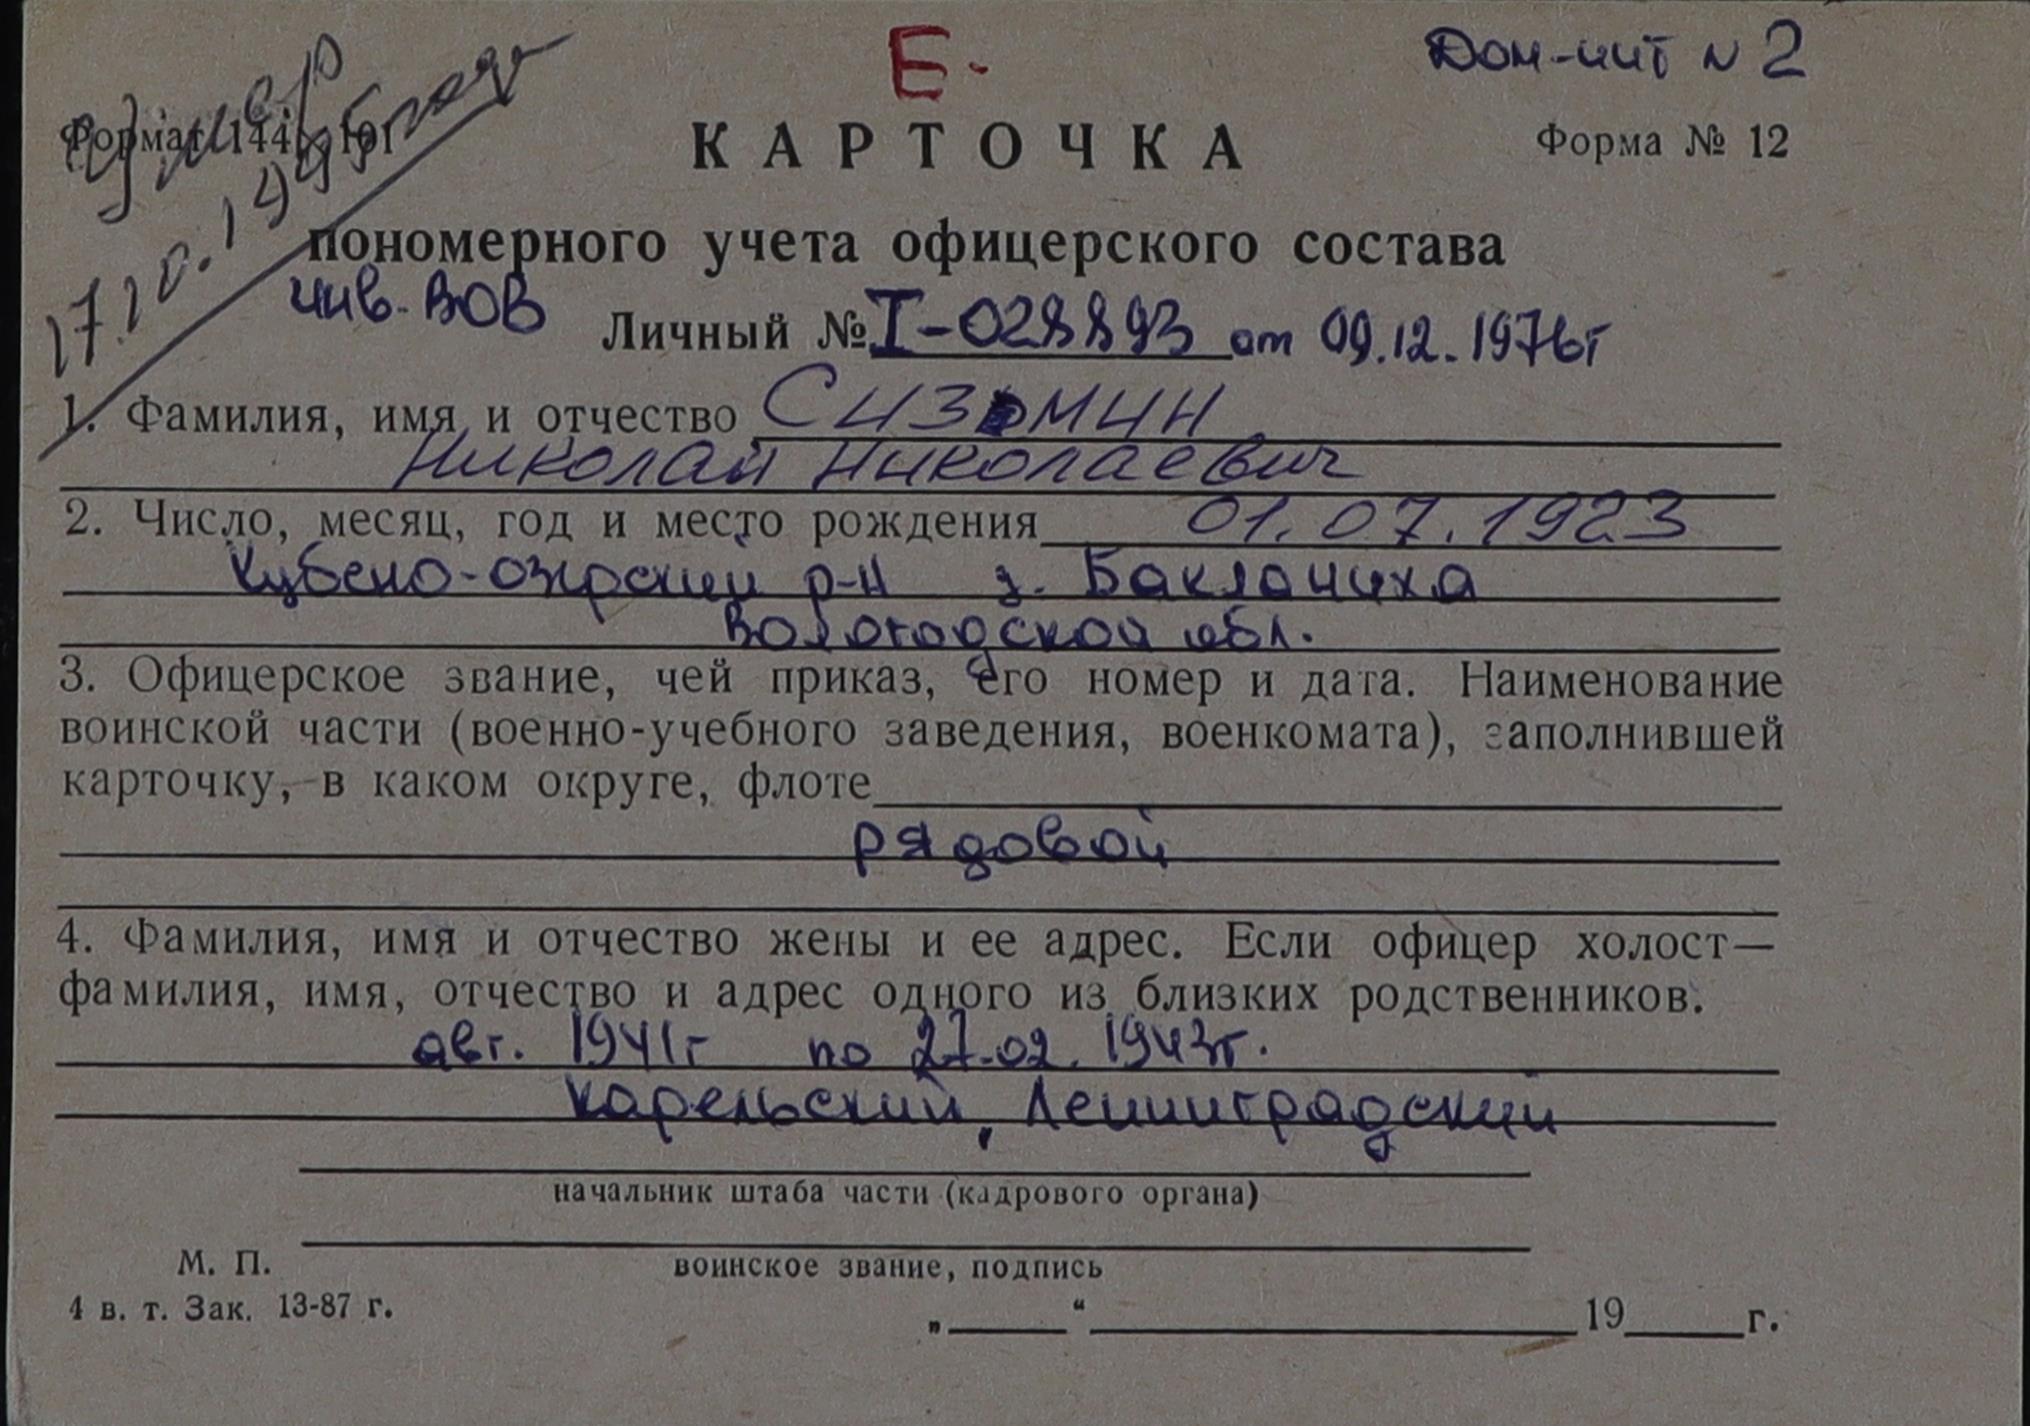 Е-
Дом-инт N 2
Формат 144×101
умер
17.10.1995 года
КАРТОЧКА
Форма № 12
пономерного учета офицерского состава
инв. ВОВ
Личный № I-028893 от 09.12.1976г
1. Фамилия, имя и отчество Сизьмин
Николай Николаевич
2. Число, месяц, год и место рождения 01.07.1923
Кубено-озрский р-н д. Бакланиха
Вологодской обл.
3. Офицерское звание, чей приказ, его номер и дата. Наименование
воинской части (военно-учебного заведения, военкомата), заполнившей
карточку, в каком округе, флоте
рядовой
4. Фамилия, имя и отчество жены и ее адрес. Если офицер холост—
фамилия, имя, отчество и адрес одного из близких родственников.
авг. 1941г по 27.02.1943г.
Карельский, Ленинградский
начальник штаба части (кадрового органа)
М. П.
воинское звание, подпись
4 в. т. Зак. 13-87 г.
„ “ 19 г.